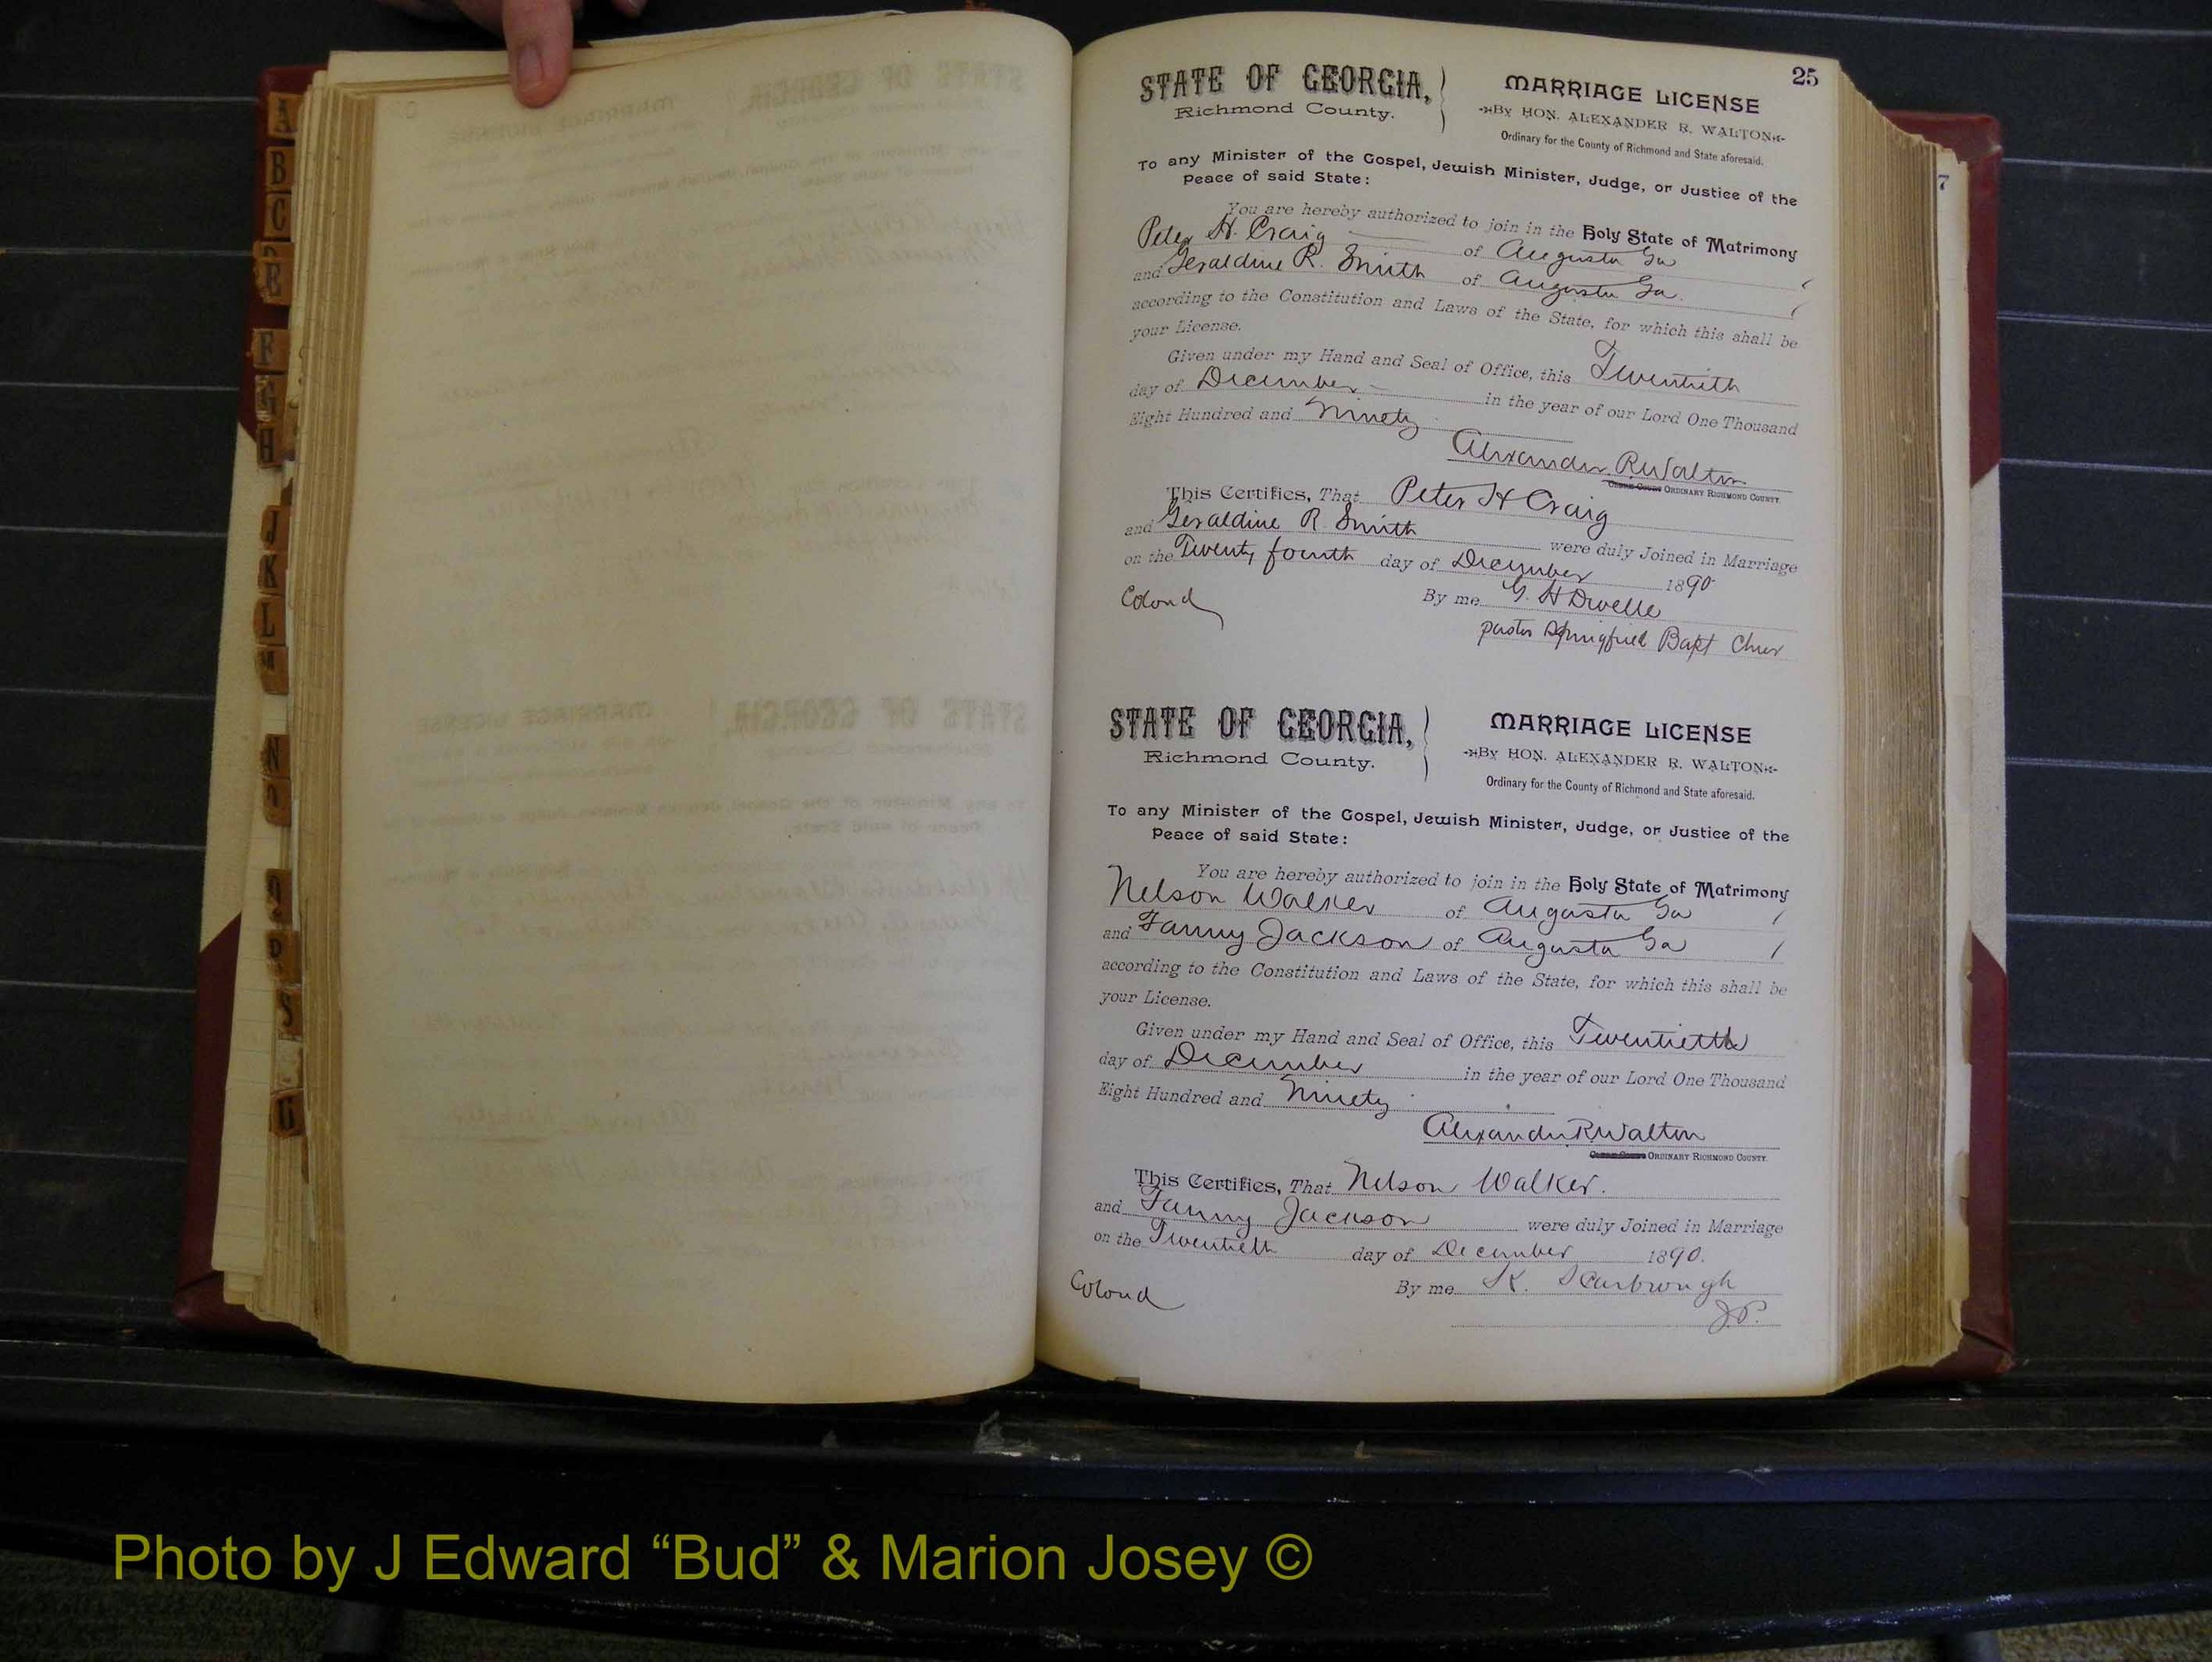 A
B
C
F
G
H
J
K
L
M
N
O
S
25
7
STATE OF GEORGIA,
Richmond County.
MARRIAGE LICENSE
By HON. ALEXANDER R. WALTON
Ordinary for the County of Richmond and State aforesaid.
To any Minister of the Gospel, Jewish Minister, Judge, or Justice of the
Peace of said State:
You are hereby authorized to join in the Holy State of Matrimony
Peter H. Craig of Augusta Ga
and Geraldine R. Smith of Augusta Ga.
according to the Constitution and Laws of the State, for which this shall be
your License.
Given under my Hand and Seal of Office, this Twentieth
day of December in the year of our Lord One Thousand
Eight Hundred and Ninety
Alexander R Walton
ORDINARY RICHMOND COUNTY.
This Certifies, That Peter H Craig
and Geraldine R. Smith were duly Joined in Marriage
on the Twenty fourth day of December 1890
Colord
By me G. H Dwelle
pastor Springfield Bapt
STATE OF GEORGIA,
Richmond County.
MARRIAGE LICENSE
By HON. ALEXANDER R. WALTON
Ordinary for the County of Richmond and State aforesaid.
To any Minister of the Gospel, Jewish Minister, Judge, or Justice of the
Peace of said State:
You are hereby authorized to join in the Holy State of Matrimony
Nelson Walker of Augusta Ga
and Fanny Jackson of Augusta Ga
according to the Constitution and Laws of the State, for which this shall be
your License.
Given under my Hand and Seal of Office, this Twentieth
day of December in the year of our Lord One Thousand
Eight Hundred and Ninety
Alexander R Walton
ORDINARY RICHMOND COUNTY.
This Certifies, That Nelson Walker.
and Fanny Jackson were duly Joined in Marriage
on the Twentieth day of December 1890.
Colord
By me K. Scarbrough
J.P.
Photo by J Edward “Bud” & Marion Josey ©